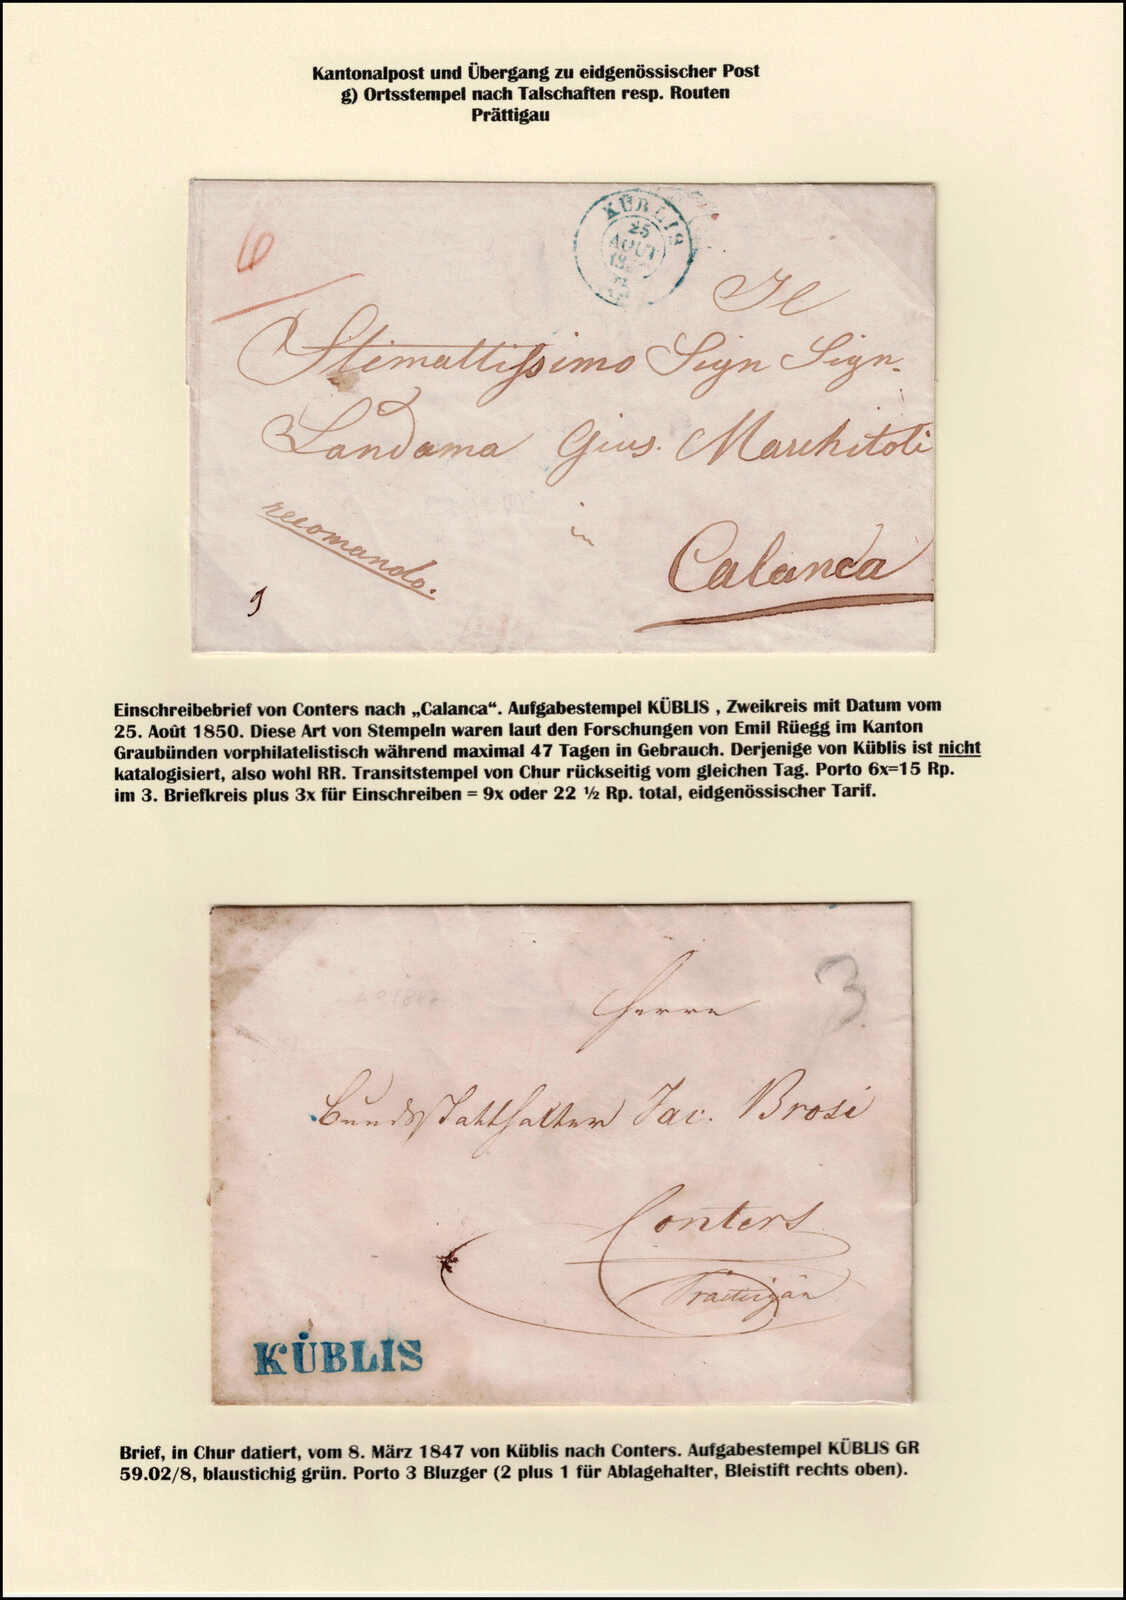 Kantonalpost und Übergang zu eidgenössischer Post
g) Ortsstempel nach Talschaften resp. Routen
Prättigau
KÜBLIS
25
AOUT
6
Il
Stimattissimo Sign Sign.
Landama Gius. Marchitoli
recomando.
in
Calanca
9
Einschreibebrief von Conters nach „Calanca“. Aufgabestempel KÜBLIS , Zweikreis mit Datum vom
25. Août 1850. Diese Art von Stempeln waren laut den Forschungen von Emil Rüegg im Kanton
Graubünden vorphilatelistisch während maximal 47 Tagen in Gebrauch. Derjenige von Küblis ist nicht
katalogisiert, also wohl RR. Transitstempel von Chur rückseitig vom gleichen Tag. Porto 6x=15 Rp.
im 3. Briefkreis plus 3x für Einschreiben = 9x oder 22 ½ Rp. total, eidgenössischer Tarif.
3
Herrn
Bundsstatthalter Jac. Brosi
Conters
Prättigäu
KÜBLIS
Brief, in Chur datiert, vom 8. März 1847 von Küblis nach Conters. Aufgabestempel KÜBLIS GR
59.02/8, blaustichig grün. Porto 3 Bluzger (2 plus 1 für Ablagehalter, Bleistift rechts oben).